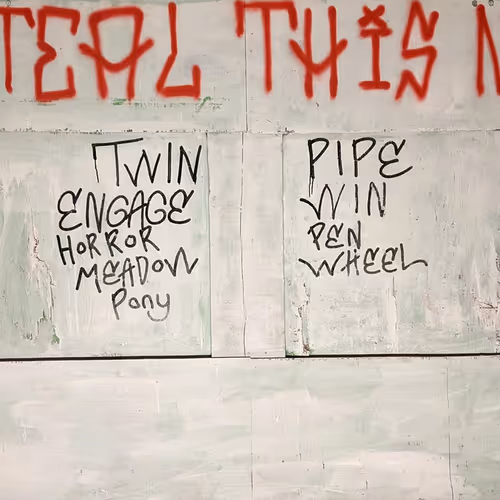 TEAL THIS
TWIN
ENGAGE
HORROR
MEADOW
Pony
PIPE
WIN
PEN
WHEEL